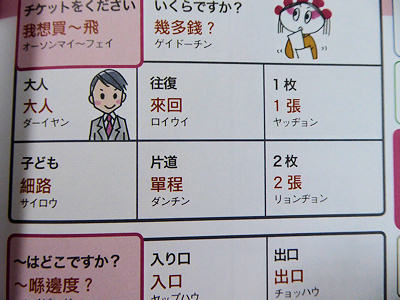 チケットをください
我想買～飛
オーソンマイ～フェイ
いくらですか？
幾多錢？
ゲイドーチン
大人
大人
ダーイヤン
往復
來回
ロイウイ
1枚
1張
ヤッヂョン
子ども
細路
サイロウ
片道
單程
ダンチン
2枚
2張
リョンヂョン
～はどこですか？
～喺邊度？
入り口
入口
ヤップハウ
出口
出口
チョッハウ